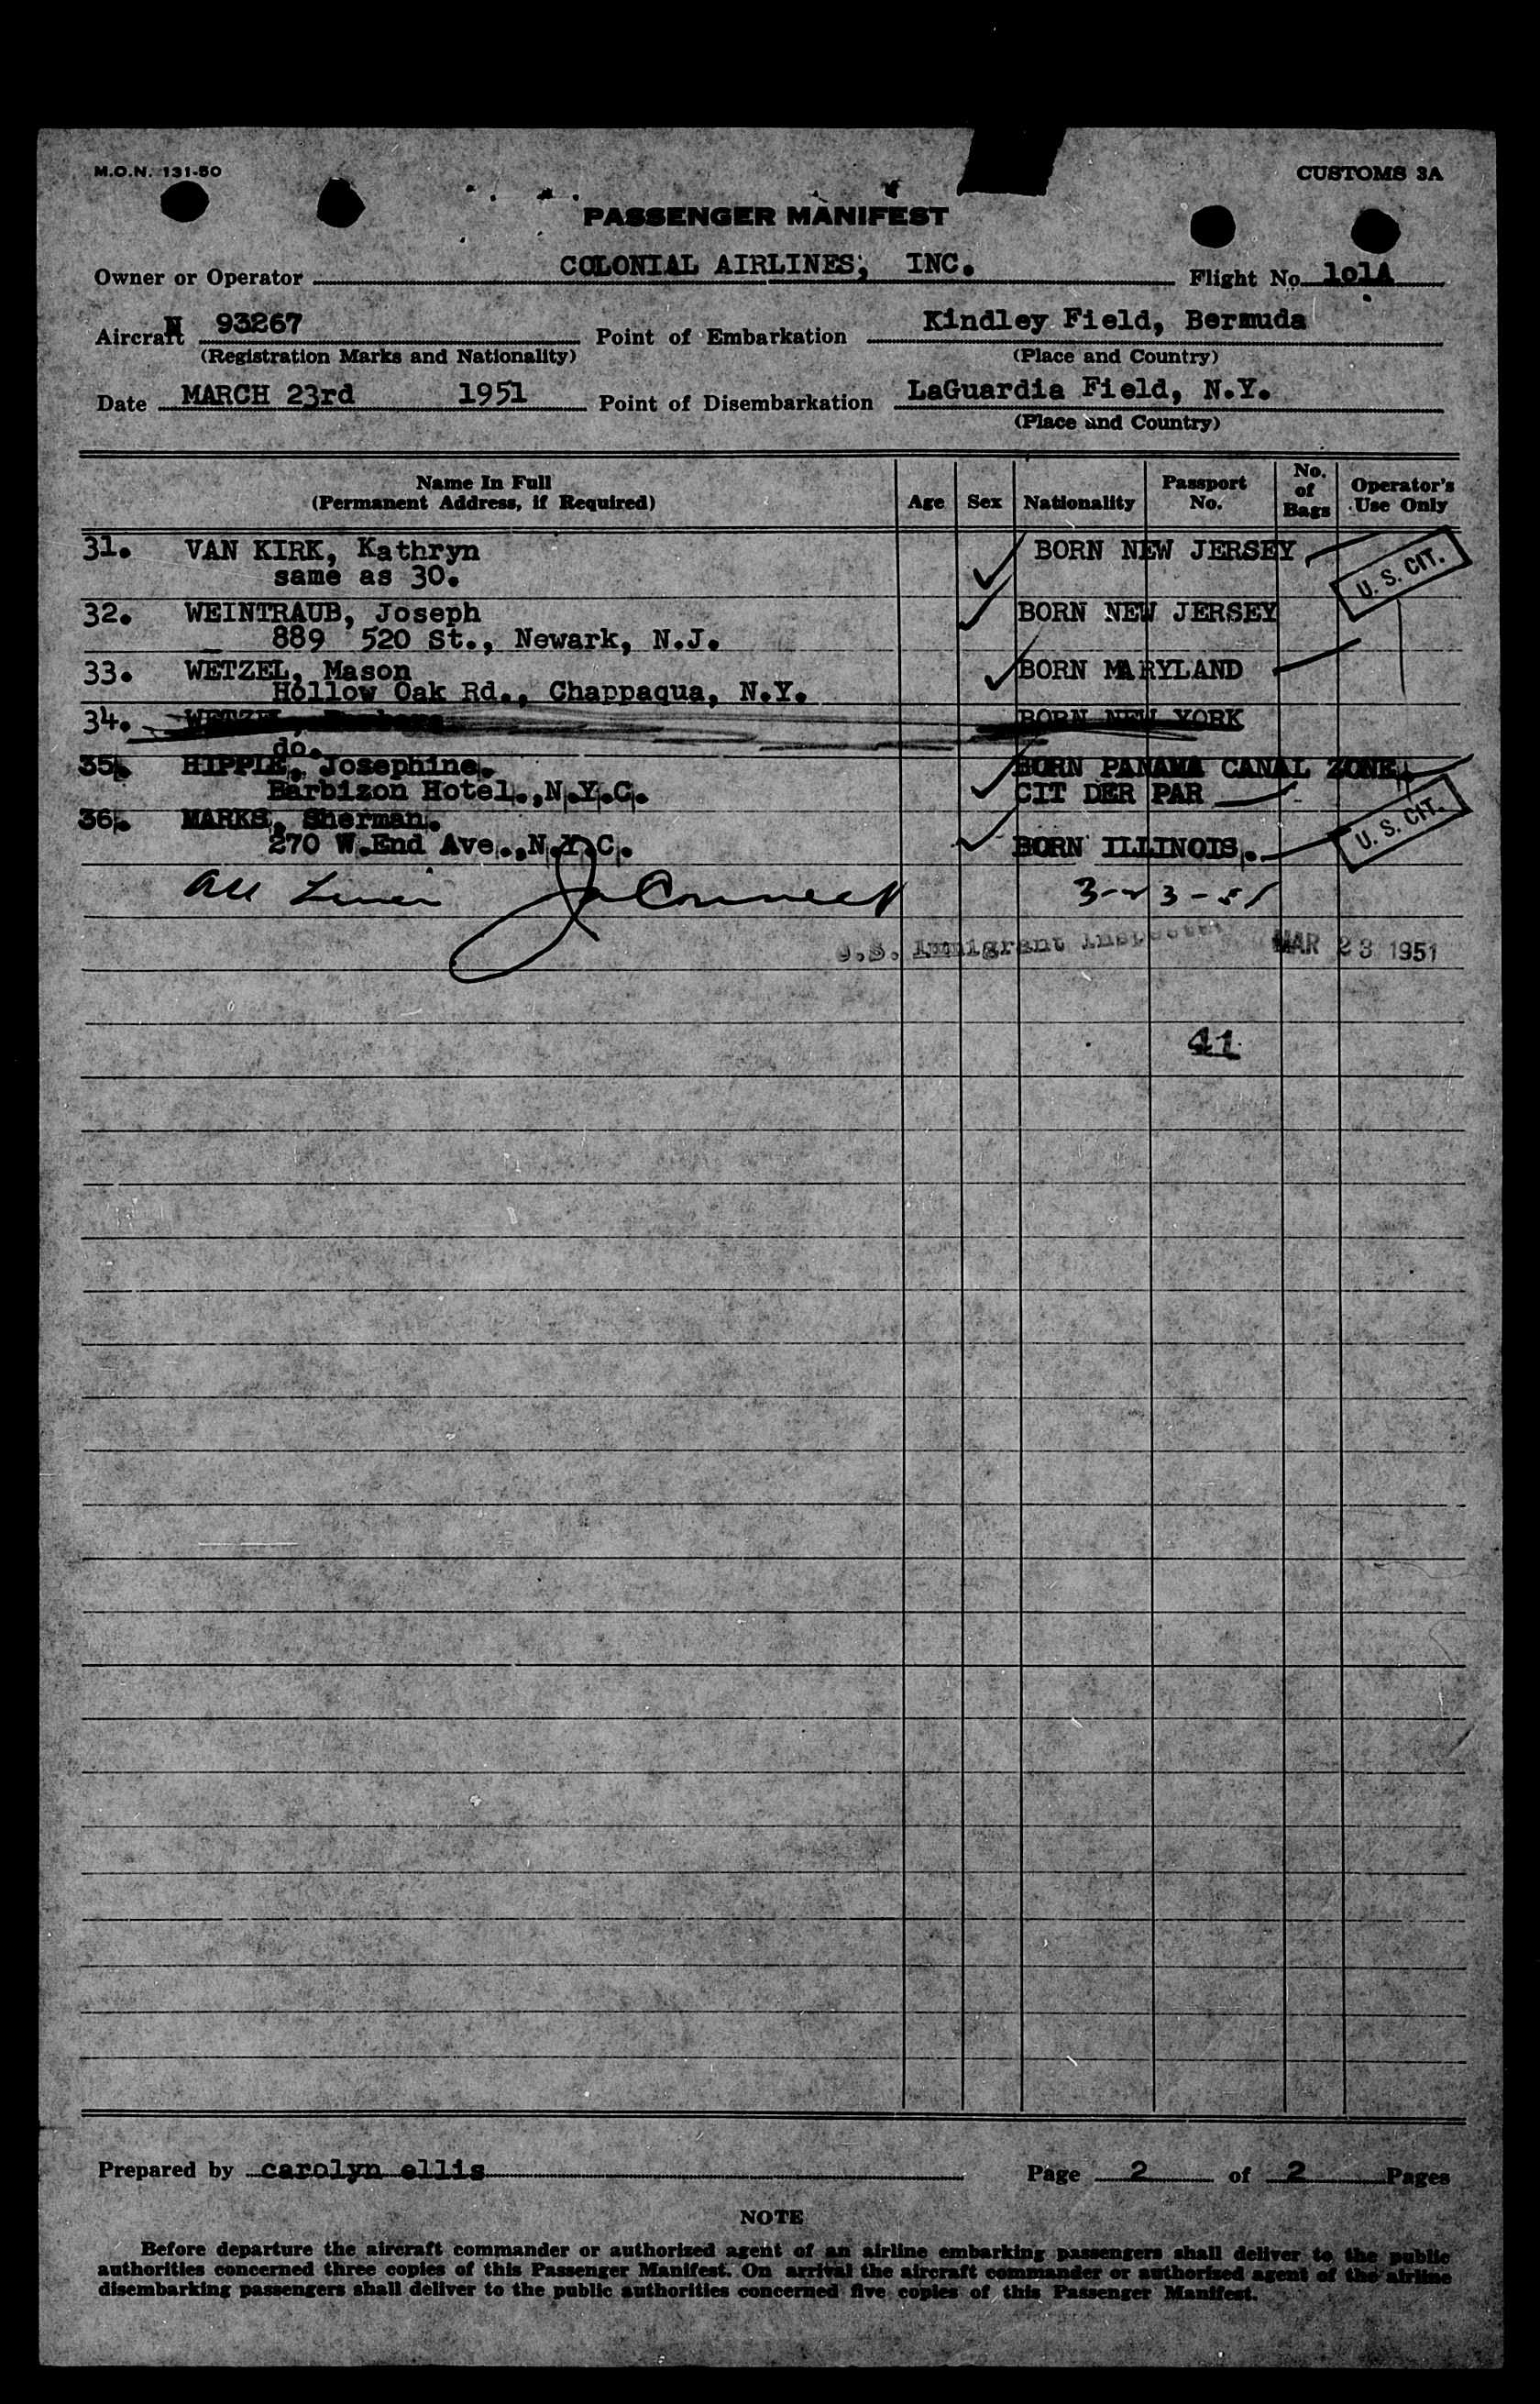 M.O.N. 131-50
CUSTOMS 3A
PASSENGER MANIFEST
Owner or Operator COLONIAL AIRLINES, INC. Flight No. 101A
Aircraft N 93267 Point of Embarkation Kindley Field, Bermuda
(Registration Marks and Nationality) (Place and Country)
Date MARCH 23rd 1951 Point of Disembarkation LaGuardia Field, N.Y.
(Place and Country)
Name In Full (Permanent Address, if Required) Age Sex Nationality Passport No. No. of Bags Operator's Use Only
31. VAN KIRK, Kathryn BORN NEW JERSEY
same as 30. U. S. CIT.
32. WEINTRAUB, Joseph BORN NEW JERSEY
889 520 St., Newark, N.J.
33. WETZEL, Mason BORN MARYLAND
Hollow Oak Rd., Chappaqua, N.Y.
34. WETZEL, BORN NEW YORK
do.
35. HIPPLE, Josephine. BORN PANAMA CANAL ZONE.
Barbizon Hotel.,N.Y.C. CIT DER PAR
36. MARKS, Sherman. U. S. CIT.
270 W.End Ave.,N.Y.C. BORN ILLINOIS.
All 3-23-51
U.S. Immigrant Inspector MAR 23 1951
41
Prepared by carolyn ellis Page 2 of 2 Pages
NOTE
Before departure the aircraft commander or authorized agent of an airline embarking passengers shall deliver to the public
authorities concerned three copies of this Passenger Manifest. On arrival the aircraft commander or authorized agent of the airline
disembarking passengers shall deliver to the public authorities concerned five copies of this Passenger Manifest.